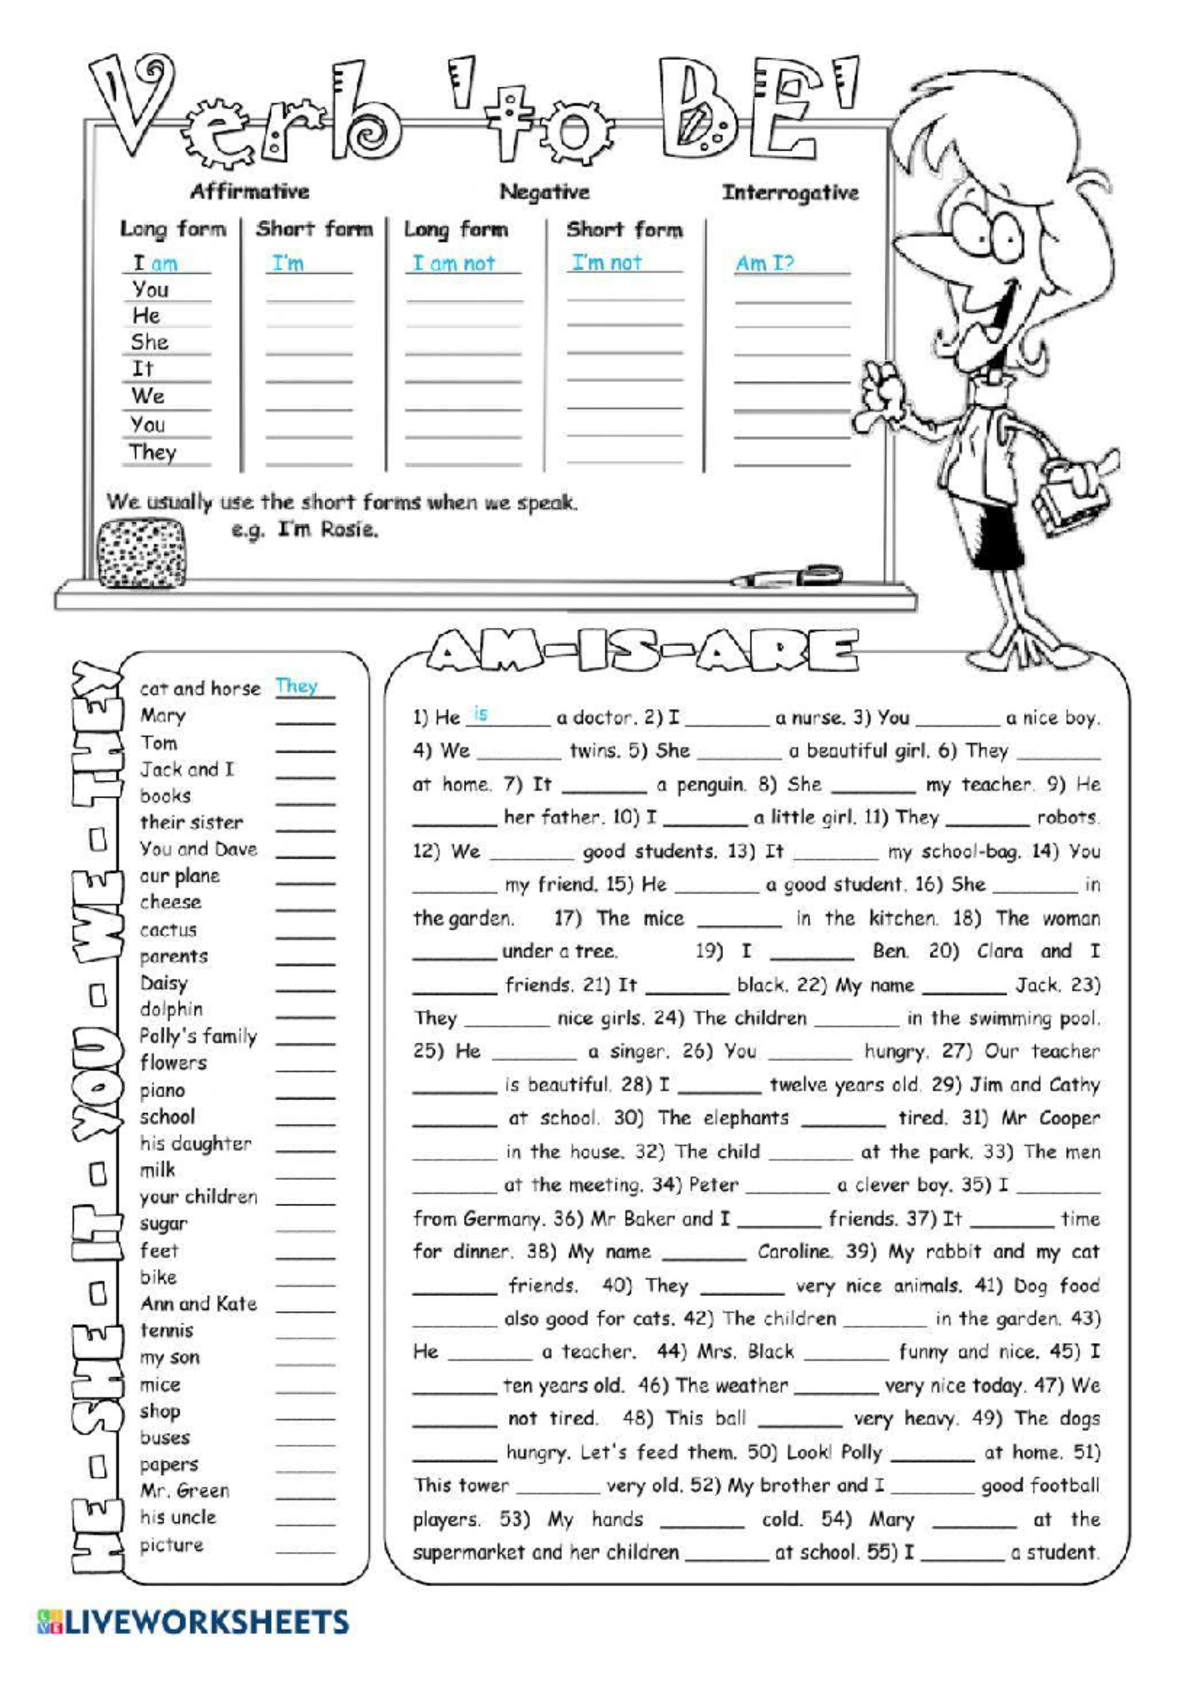 Verb 'to BE'
Affirmative Negative Interrogative
Long form Short form Long form Short form
I am I'm I am not I'm not Am I?
You
He
She
It
We
You
They
We usually use the short forms when we speak.
e.g. I'm Rosie.
HE - SHE - IT - YOU - WE - THEY
cat and horse They
Mary
Tom
Jack and I
books
their sister
You and Dave
our plane
cheese
cactus
parents
Daisy
dolphin
Polly's family
flowers
piano
school
his daughter
milk
your children
sugar
feet
bike
Ann and Kate
tennis
my son
mice
shop
buses
papers
Mr. Green
his uncle
picture
AM-IS-ARE
1) He is a doctor. 2) I ________ a nurse. 3) You ________ a nice boy.
4) We ________ twins. 5) She ________ a beautiful girl. 6) They ________
at home. 7) It ________ a penguin. 8) She ________ my teacher. 9) He
________ her father. 10) I ________ a little girl. 11) They ________ robots.
12) We ________ good students. 13) It ________ my school-bag. 14) You
________ my friend. 15) He ________ a good student. 16) She ________ in
the garden. 17) The mice ________ in the kitchen. 18) The woman
________ under a tree. 19) I ________ Ben. 20) Clara and I
________ friends. 21) It ________ black. 22) My name ________ Jack. 23)
They ________ nice girls. 24) The children ________ in the swimming pool.
25) He ________ a singer. 26) You ________ hungry. 27) Our teacher
________ is beautiful. 28) I ________ twelve years old. 29) Jim and Cathy
________ at school. 30) The elephants ________ tired. 31) Mr Cooper
________ in the house. 32) The child ________ at the park. 33) The men
________ at the meeting. 34) Peter ________ a clever boy. 35) I ________
from Germany. 36) Mr Baker and I ________ friends. 37) It ________ time
for dinner. 38) My name ________ Caroline. 39) My rabbit and my cat
________ friends. 40) They ________ very nice animals. 41) Dog food
________ also good for cats. 42) The children ________ in the garden. 43)
He ________ a teacher. 44) Mrs. Black ________ funny and nice. 45) I
________ ten years old. 46) The weather ________ very nice today. 47) We
________ not tired. 48) This ball ________ very heavy. 49) The dogs
________ hungry. Let's feed them. 50) Look! Polly ________ at home. 51)
This tower ________ very old. 52) My brother and I ________ good football
players. 53) My hands ________ cold. 54) Mary ________ at the
supermarket and her children ________ at school. 55) I ________ a student.
LIVE LIVEWORKSHEETS